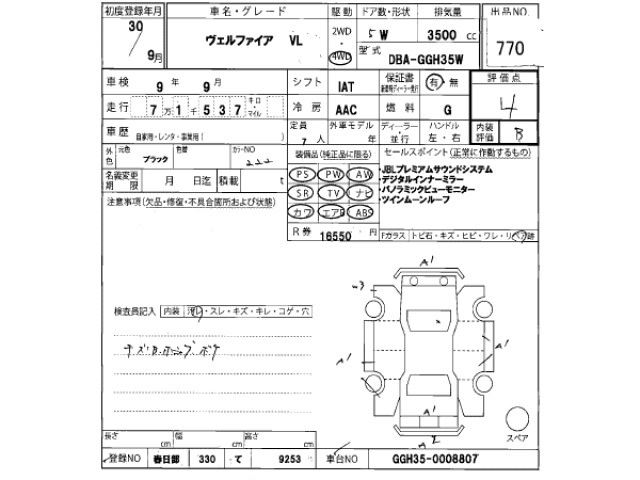 初度登録年月 車名・グレード 駆動 ドア数・形状 排気量 出品NO.
30 9月 ヴェルファイア VL 2WD 4WD 5 W 3500 cc 770
型式 DBA-GGH35W
車検 9年 9月 シフト IAT 保証書 有 無 評価点
走行 7万1千537 キロ・マイル 冷房 AAC 燃料 G 4
車歴 自家用・レンタ・事業用( ) 定員 7人 外車モデル 年 ディーラー・並行 ハンドル 左・右 内装評価 B
外色 元色 ブラック 色替 カラーNO 222 装備品(純正品に限る) セールスポイント(正常に作動するもの)
名義変更期限 月 日迄 積載 t PS PW AW ・JBLプレミアムサウンドシステム
・デジタルインナーミラー
SR TV ナビ ・パノラミックビューモニター
注意事項(欠品・修復・不具合箇所および状態) カワ エアB ABS ・ツインムーンルーフ
R券 16550円 Fガラス トビ石・キズ・ヒビ・ワレ・リペア跡
A1
W3
検査員記入 内装 汚レ・スレ・キズ・キレ・コゲ・穴
A1 A1
A1
A2
スペア
長さ cm 幅 cm 高さ cm
登録NO 春日部 330 て 9253 車台NO GGH35-0008807